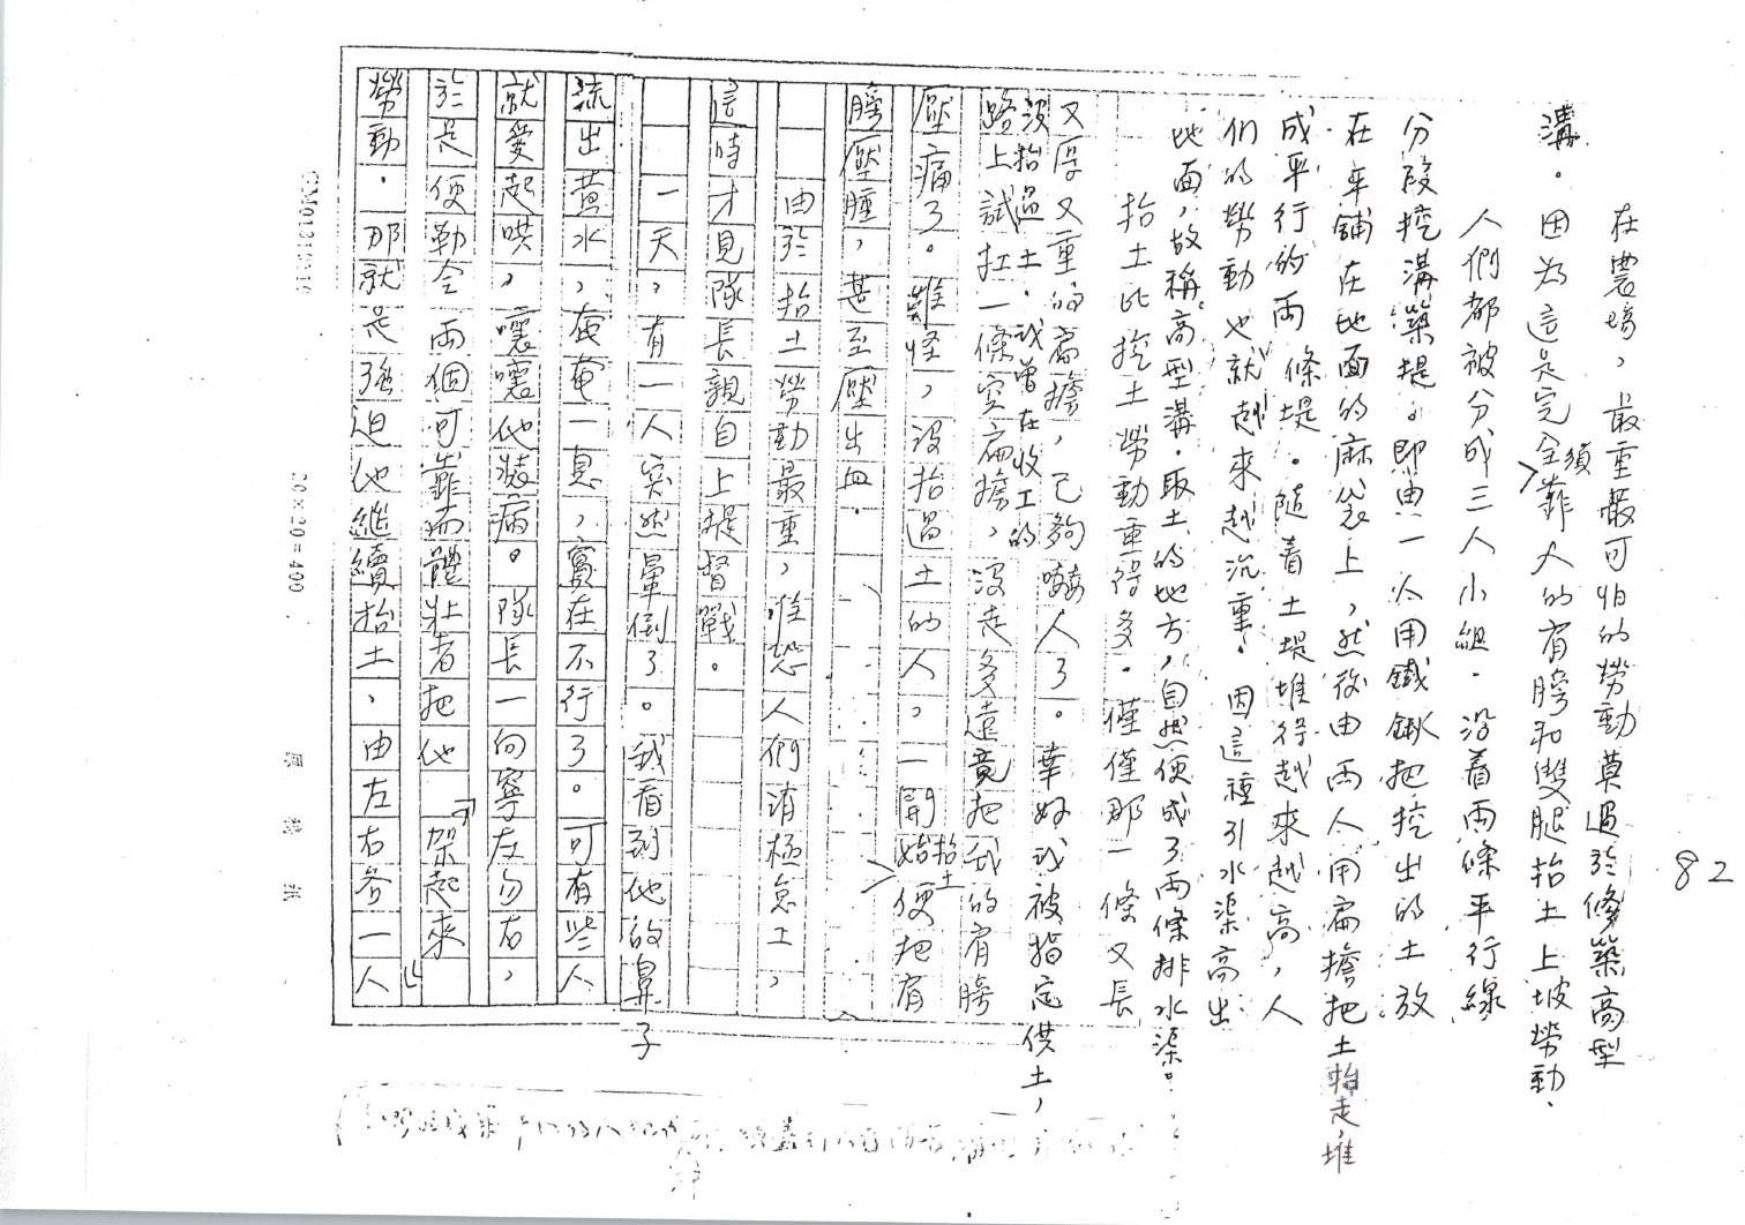 82
在農場，最重最可怕的勞動莫過於修築高型
溝。因為這是完全須靠人的肩膀和雙腿抬土上坡勞動．
人們都被分成三人小組．沿着兩條平行線
分段挖溝築堤。即由一人用鐵鍬把挖出的土放
在平鋪在地面的麻袋上，然後由兩人用扁擔把土抬走堆
成平行的兩條堤．隨着土堤堆得越來越高，人
们的勞動也就越來越沉重．因這種引水渠高出
地面，故稱高型溝．取土的地方，自然便成了兩條排水渠。
抬土比挖土勞動重得多．僅僅那一條又長
又厚又重的扁擔，已夠嚇人了。幸好我被指定供土，
沒抬過土．我曾在收工的
路上試扛一條空扁擔，沒走多遠竟把我的肩膀
壓痛了。難怪，沒抬過土的人，一開始抬土便把肩
膀壓腫，甚至壓出血．
由於抬土勞動最重，惟恐人們消極怠工，
這時才見隊長親自上堤督戰。
一天，有一人突然暈倒了。我看到他的鼻子
流出黃水，奄奄一息，實在不行了。可有些人
就愛起哄，嚷嚷他裝病。隊長一向寧左勿右，
於是便勒令兩個可靠而體壯者把他『架起來』
勞動．那就是强迫他繼續抬土，由左右各一人
20×20=400